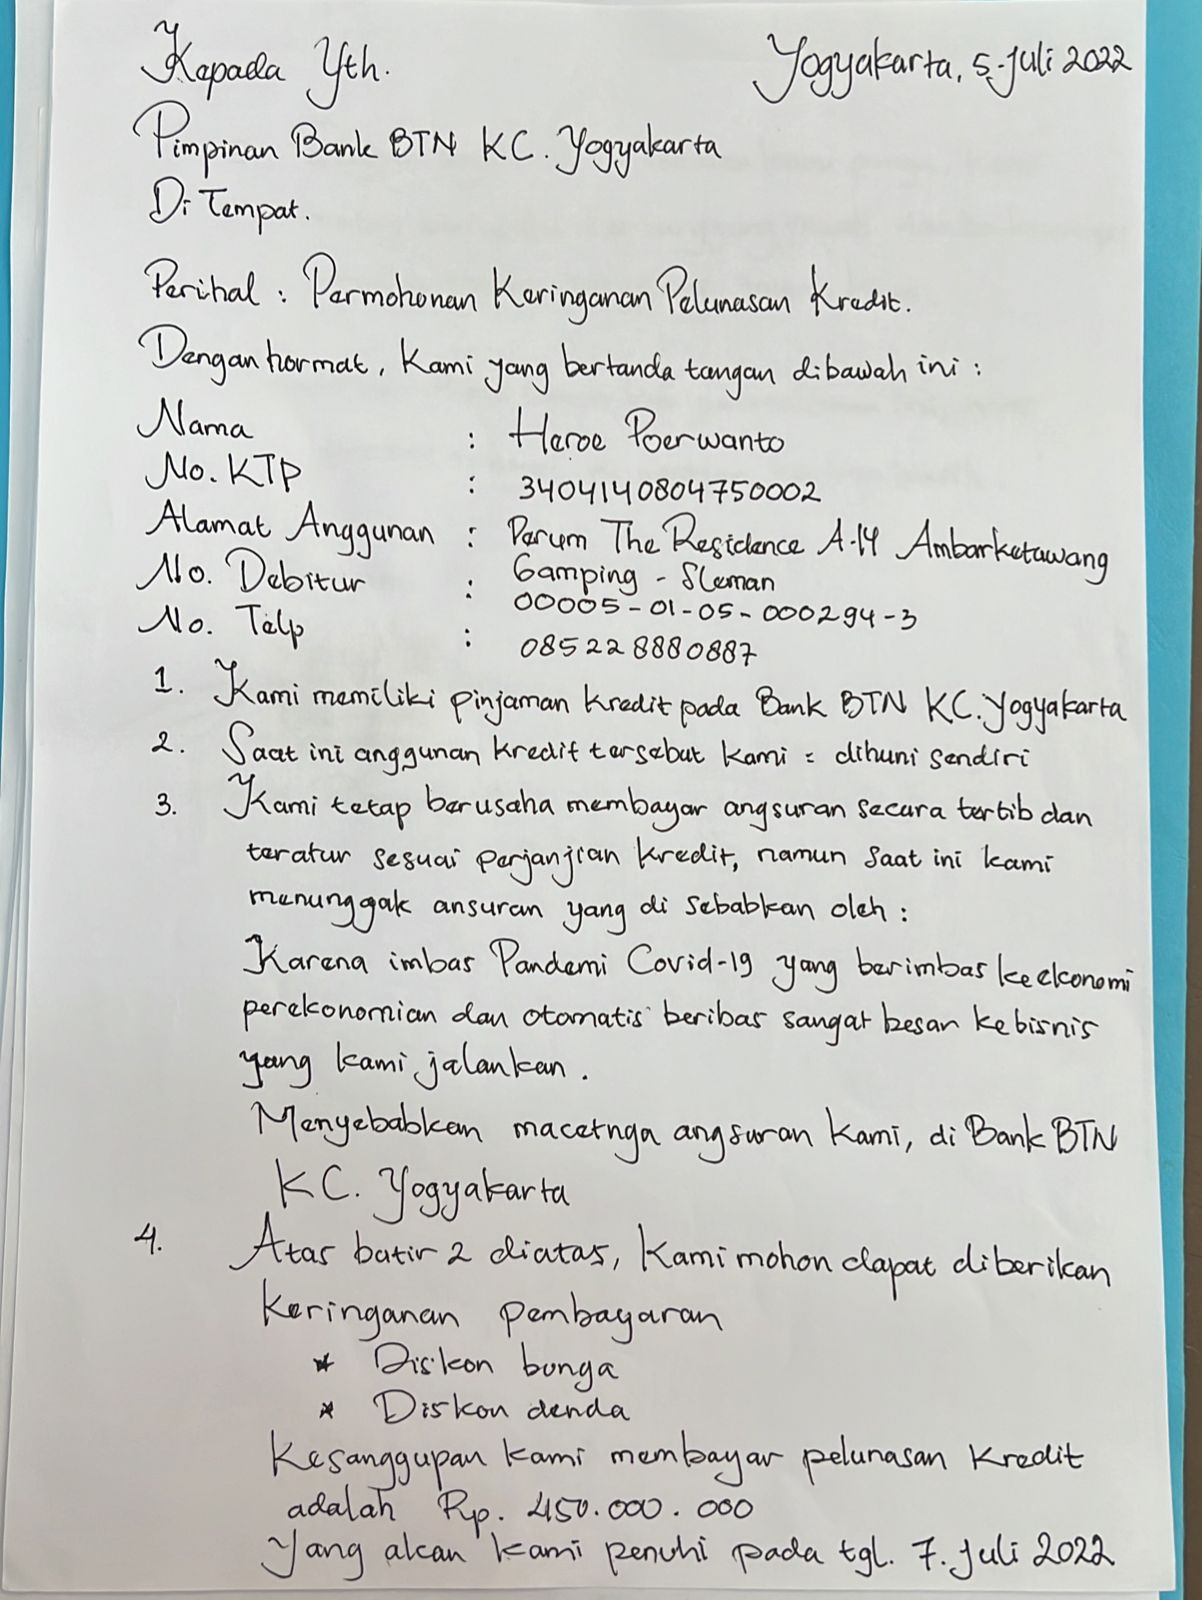 Kepada Yth. Yogyakarta, 5-Juli 2022
Pimpinan Bank BTN KC. Yogyakarta
Di Tempat.
Perihal : Permohonan Keringanan Pelunasan Kredit.
Dengan hormat, Kami yang bertanda tangan dibawah ini :
Nama : Heroe Poerwanto
No. KTP : 3404140804750002
Alamat Anggunan : Perum The Residence A-14 Ambarketawang
Gamping - Sleman
No. Debitur : 00005-01-05-000294-3
No. Telp : 085228880887
1. Kami memiliki pinjaman kredit pada Bank BTN KC. Yogyakarta
2. Saat ini anggunan kredit tersebut kami = dihuni sendiri
3. Kami tetap berusaha membayar angsuran secara tertib dan
teratur sesuai perjanjian kredit, namun saat ini kami
menunggak ansuran yang di sebabkan oleh :
Karena imbas Pandemi Covid-19 yang berimbas ke ekonomi
perekonomian dan otomatis beribas sangat besar ke bisnis
yang kami jalankan.
Menyebabkan macetnya angsuran kami, di Bank BTN
KC. Yogyakarta
4. Atas butir 2 diatas, Kami mohon dapat diberikan
keringanan pembayaran
* Diskon bunga
* Diskon denda
Kesanggupan kami membayar pelunasan kredit
adalah Rp. 450.000.000
Yang akan kami penuhi pada tgl. 7. Juli 2022